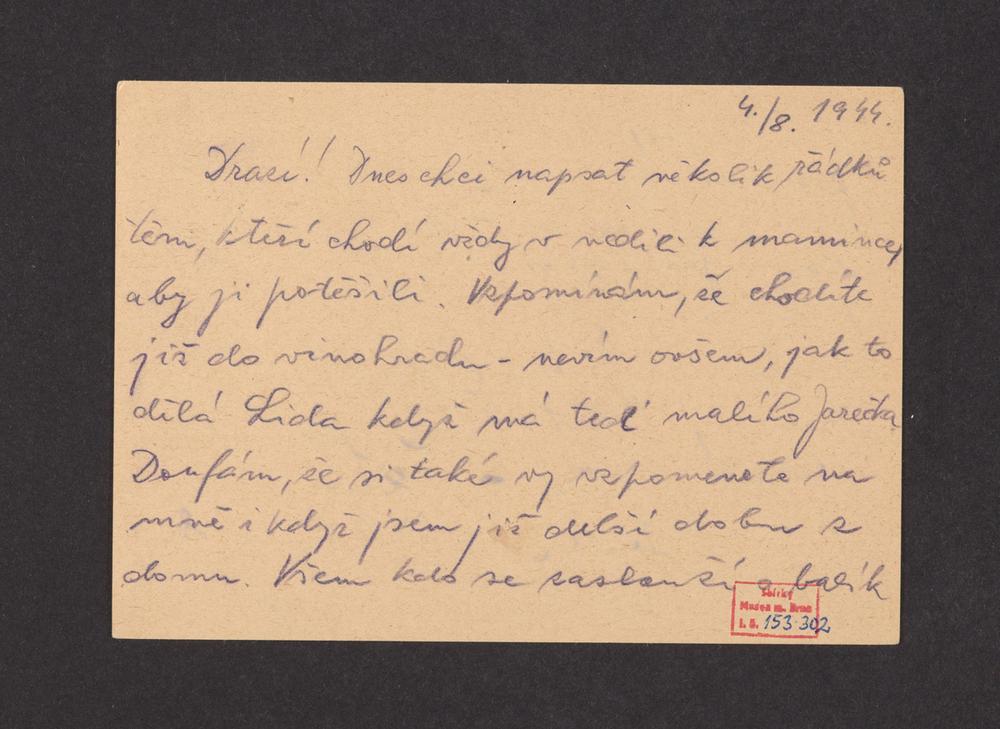 4./8. 1944.
Drazí! Dnes chci napsat několik řádků
těm, kteří chodí vždy v neděli k mamince,
aby ji potěšili. Vzpomínám, že chodíte
již do vinohradu - nevím ovšem, jak to
dělá Lida když má teď malého Jarečka
Doufám, že si také vy vzpomenete na
mně i když jsem již delší dobu z
domu. Všem kdo se zaslouží o balík
Sbírky
Musea m. Brna
i. č. 153 302